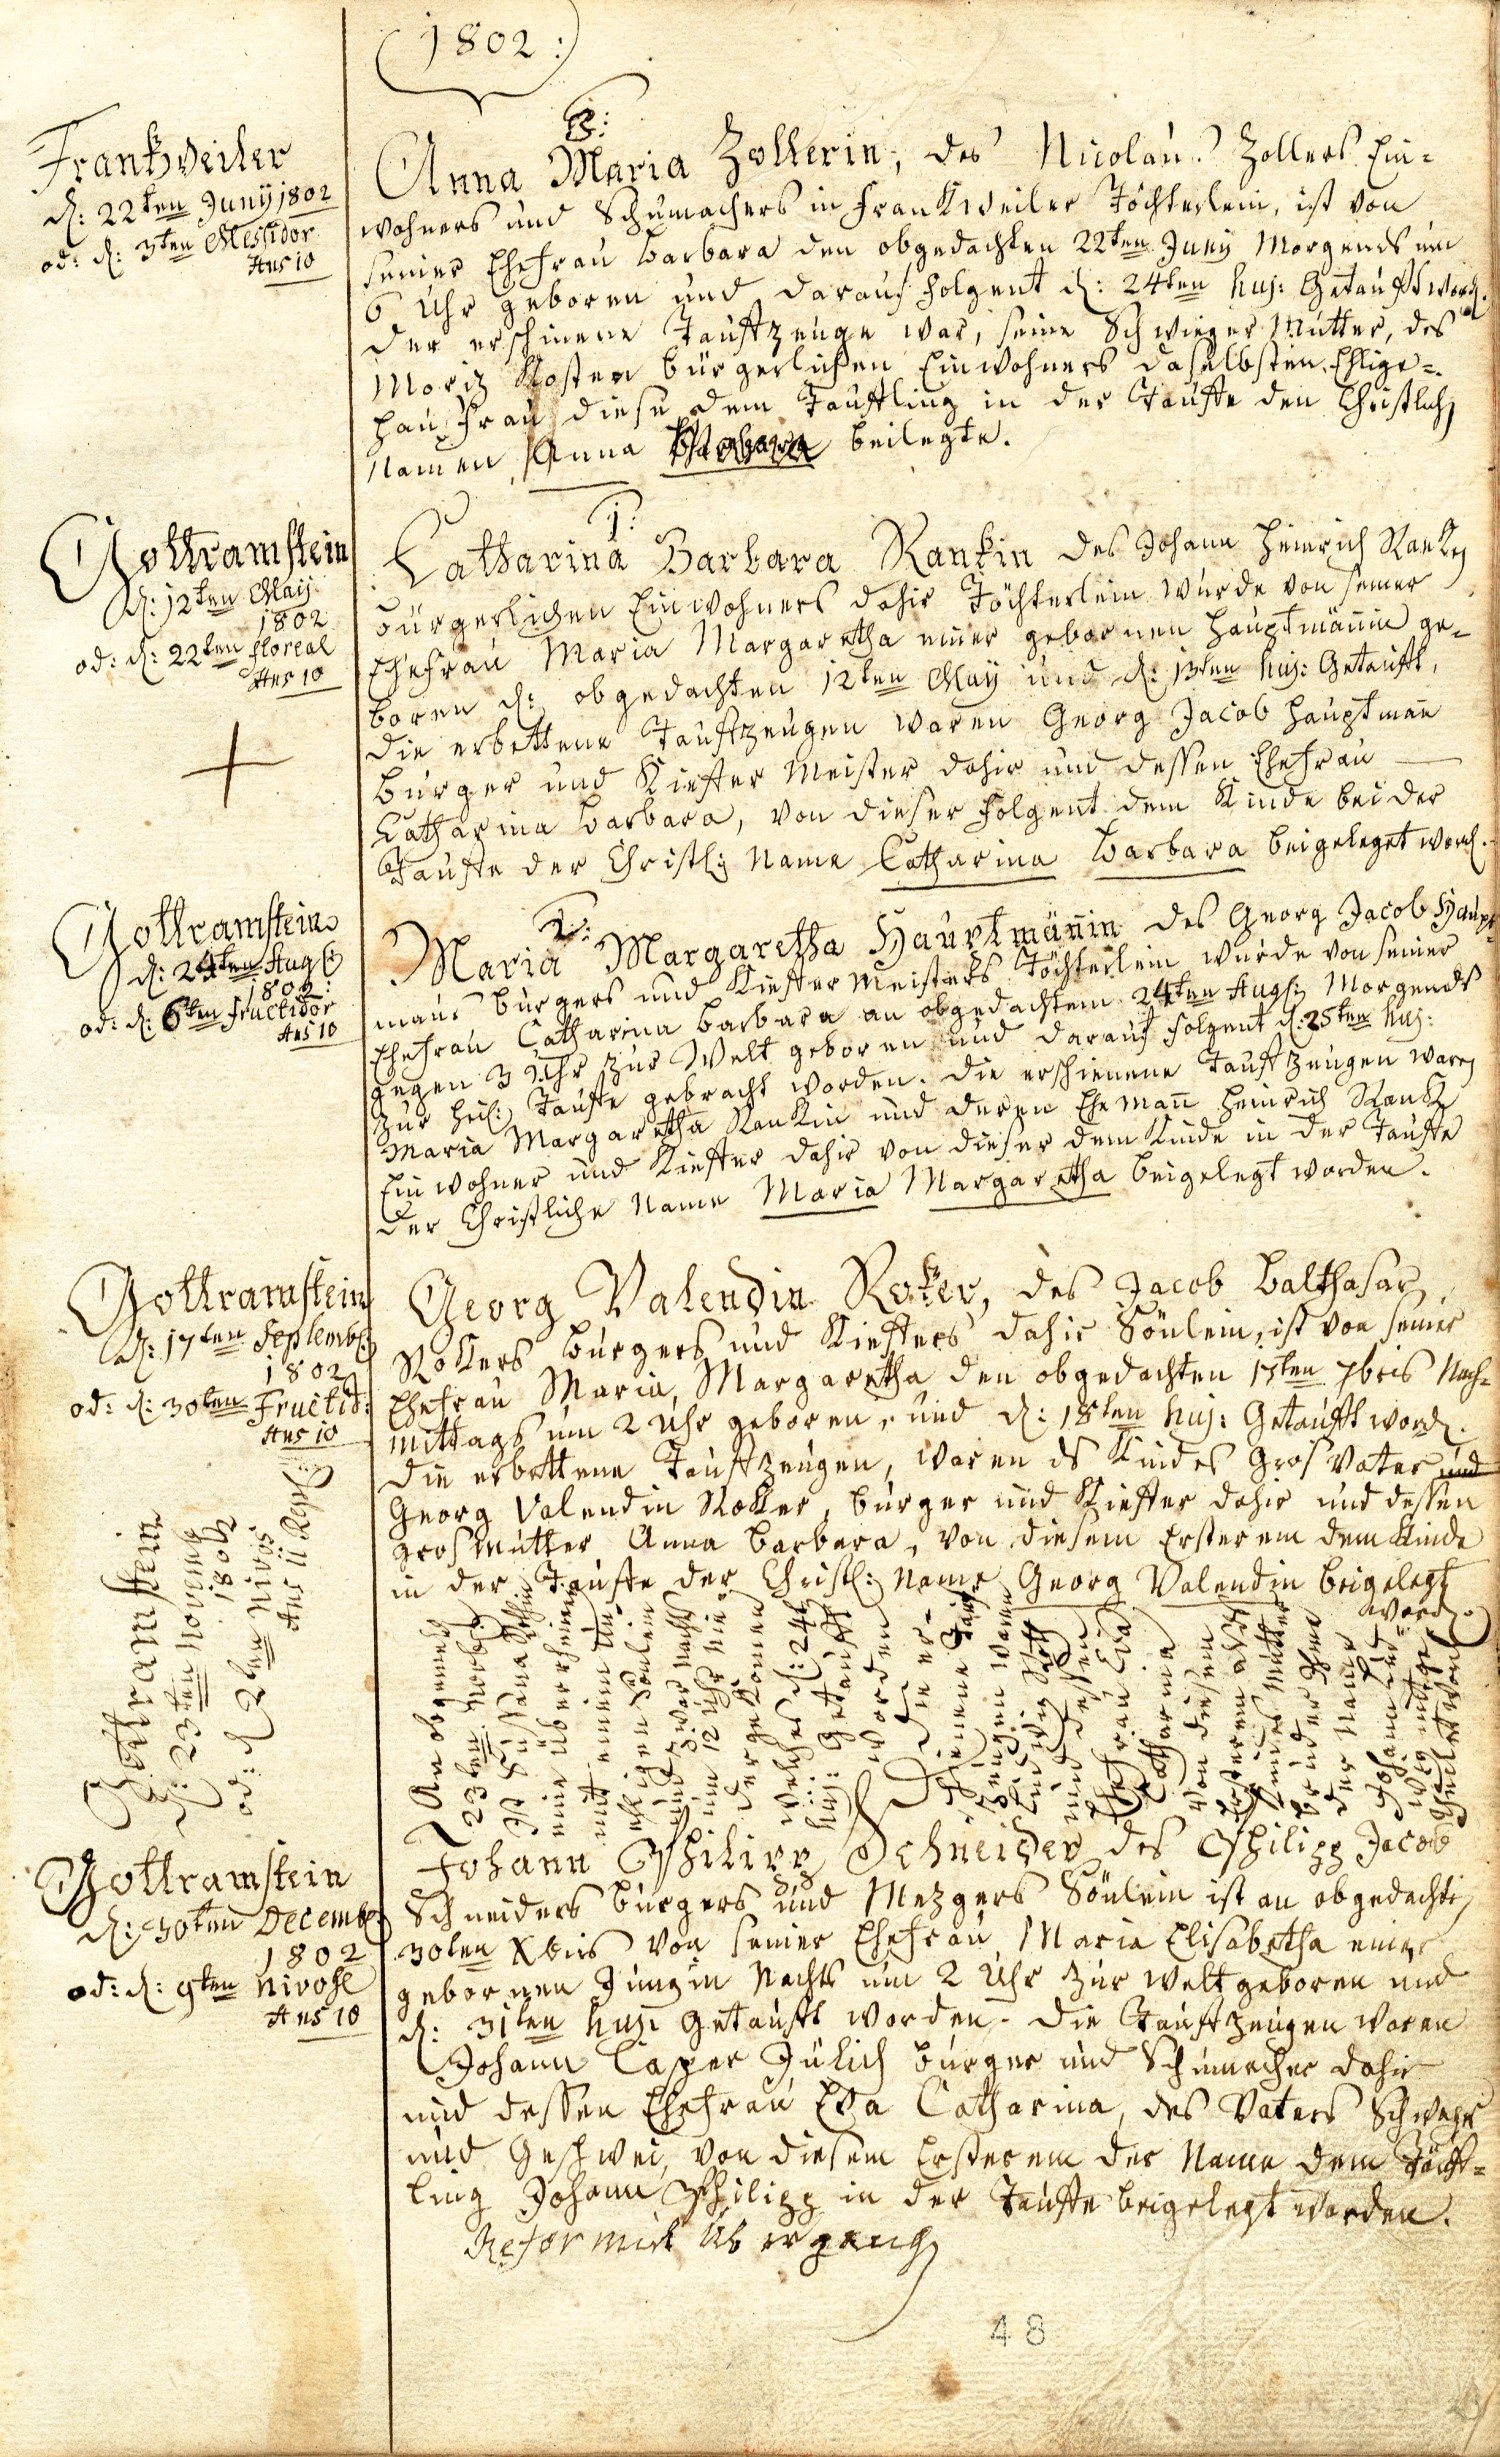 1802:
Frankweiler
d: 22ten Junÿ 1802
od: d: 3ten Messidor
Ans 10
3:
Anna Maria Zollerin, des Nicolaus Zollers Ein=
wohners und Schumachers in Frankweiler Töchterlein, ist von
seiner Ehefrau Barbara den obgedachten 22ten Juny Morgends um
6 Uhr geboren und darauf folgent d: 24ten huj: Getaufft word.
der erschinene Tauffzeuge war, seine Schwieger Mutter, des
Moriz Kosten bürgerlichen Einwohners daselbsten Ehlige=
Hausfrau diese dem Täuffling in der Tauffe den Christlich
Namen Anna beilegte.
Gottramstein
d: 12ten Maÿ
1802
od: d: 22ten floreal
Ans 10
1:
Catharina Barbara Rankin des Johann Heinrich Ranken
bürgerlichen Einwohners dahir Töchterlein wurde von seiner
Ehefrau Maria Margaretha einer gebornen Hauptmännin ge=
boren d: obgedachten 12ten Maÿ und d: 13ten huj: Getaufft,
die erbettene Tauffzeugen waren Georg Jacob Hauptmañ
Burger und Kieffer Meister dahir und dessen Ehefrau
Catharina Barbara, von dieser folgent dem Kinde bei der
Tauffe der Christl: Name Catharina Barbara beigeleget word.
Gottramstein
d: 24ten Augs:
1802:
od: d: 6ten fructidor
Ans 10
2:
Maria Margaretha Hauptmäñin des Georg Jacob Haupt=
mans burgers und Kieffer Meisters Töchterlein wurde von seiner
Ehefrau Catharina Barbara an obgedachtem 24ten Augs: Morgends
gegen 3 Uhr zur Welt geboren und darauf folgent d: 25ten huj:
zur heil: Tauffe gebracht worden. die erschienene Tauffzeugen waren
Maria Margaretha Rankin und deren Ehe Mañ Heinrich Rank
Einwohner und Kieffer dahir von dieser dem Kinde in der Tauffe
der Christliche Name Maria Margaretha beigelegt worden.
Gottramstein
d: 17ten Septembr:
1802
od: d: 30ten Fructid:
Ans 10
Georg Valendin Roker, des Jacob Balthasar
Rokers burgers und Kieffers dahir Sönlein, ist von seiner
Ehefrau Maria Margaretha den obgedachten 17ten 7bris Nach=
mittags um 2 Uhr geboren, und d: 18ten huj: Getaufft word.
die erbettene Tauffzeugen, waren ds Kindes Gros Vater und
Georg Valendin Roker, burger und Kieffer dahir und dessen
grosmutter Anna Barbara, von diesem Ersterem dem Kinde
in der Tauffe der Christl: Name Georg Valendin beigelegt
word.
Gottramstein
d: 23ten Novemb
1802
od: d 2ten Nivos
Ans 11 Rep:
An obgemelt
23ten Novbr:
mit einem un
ehligen Sönlein
und zwar Nachts
um 12 Uhr nie=
dergekomen
welches d: 24t
huj: Getaufft
worden
Die er=
schienene Tauf
zeugen waren
Ludwig Roth
und dessen
Ehefrau Eva
Catharina
von diesem
Ersterem als
seiner Mutter
bruder der
der Name
Johann Lud=
wig
Gottramstein
d: 30ten Decembr:
1802
od: d: 9ten Nivose
Ans 10
Johann Philipp Schneider des Philipp Jacob
Schneiders burgers und Mezgers Sönlein ist an obgedachten
30ten Xbris von seiner Ehefrau Maria Elisabetha einer
gebornen Jungin Nachts um 2 Uhr zur Welt geboren und
d: 31ten huj: Getaufft worden. Die Tauffzeugen waren
Johann Casper Jülich burger und Schumacher dahir
und dessen Ehefrau Eva Catharina, des Vaters Schwager
und Geschwei, von diesem Ersterem der Name dem Täuff=
ling Johann Philipp in der Tauffe beigelegt worden.
48